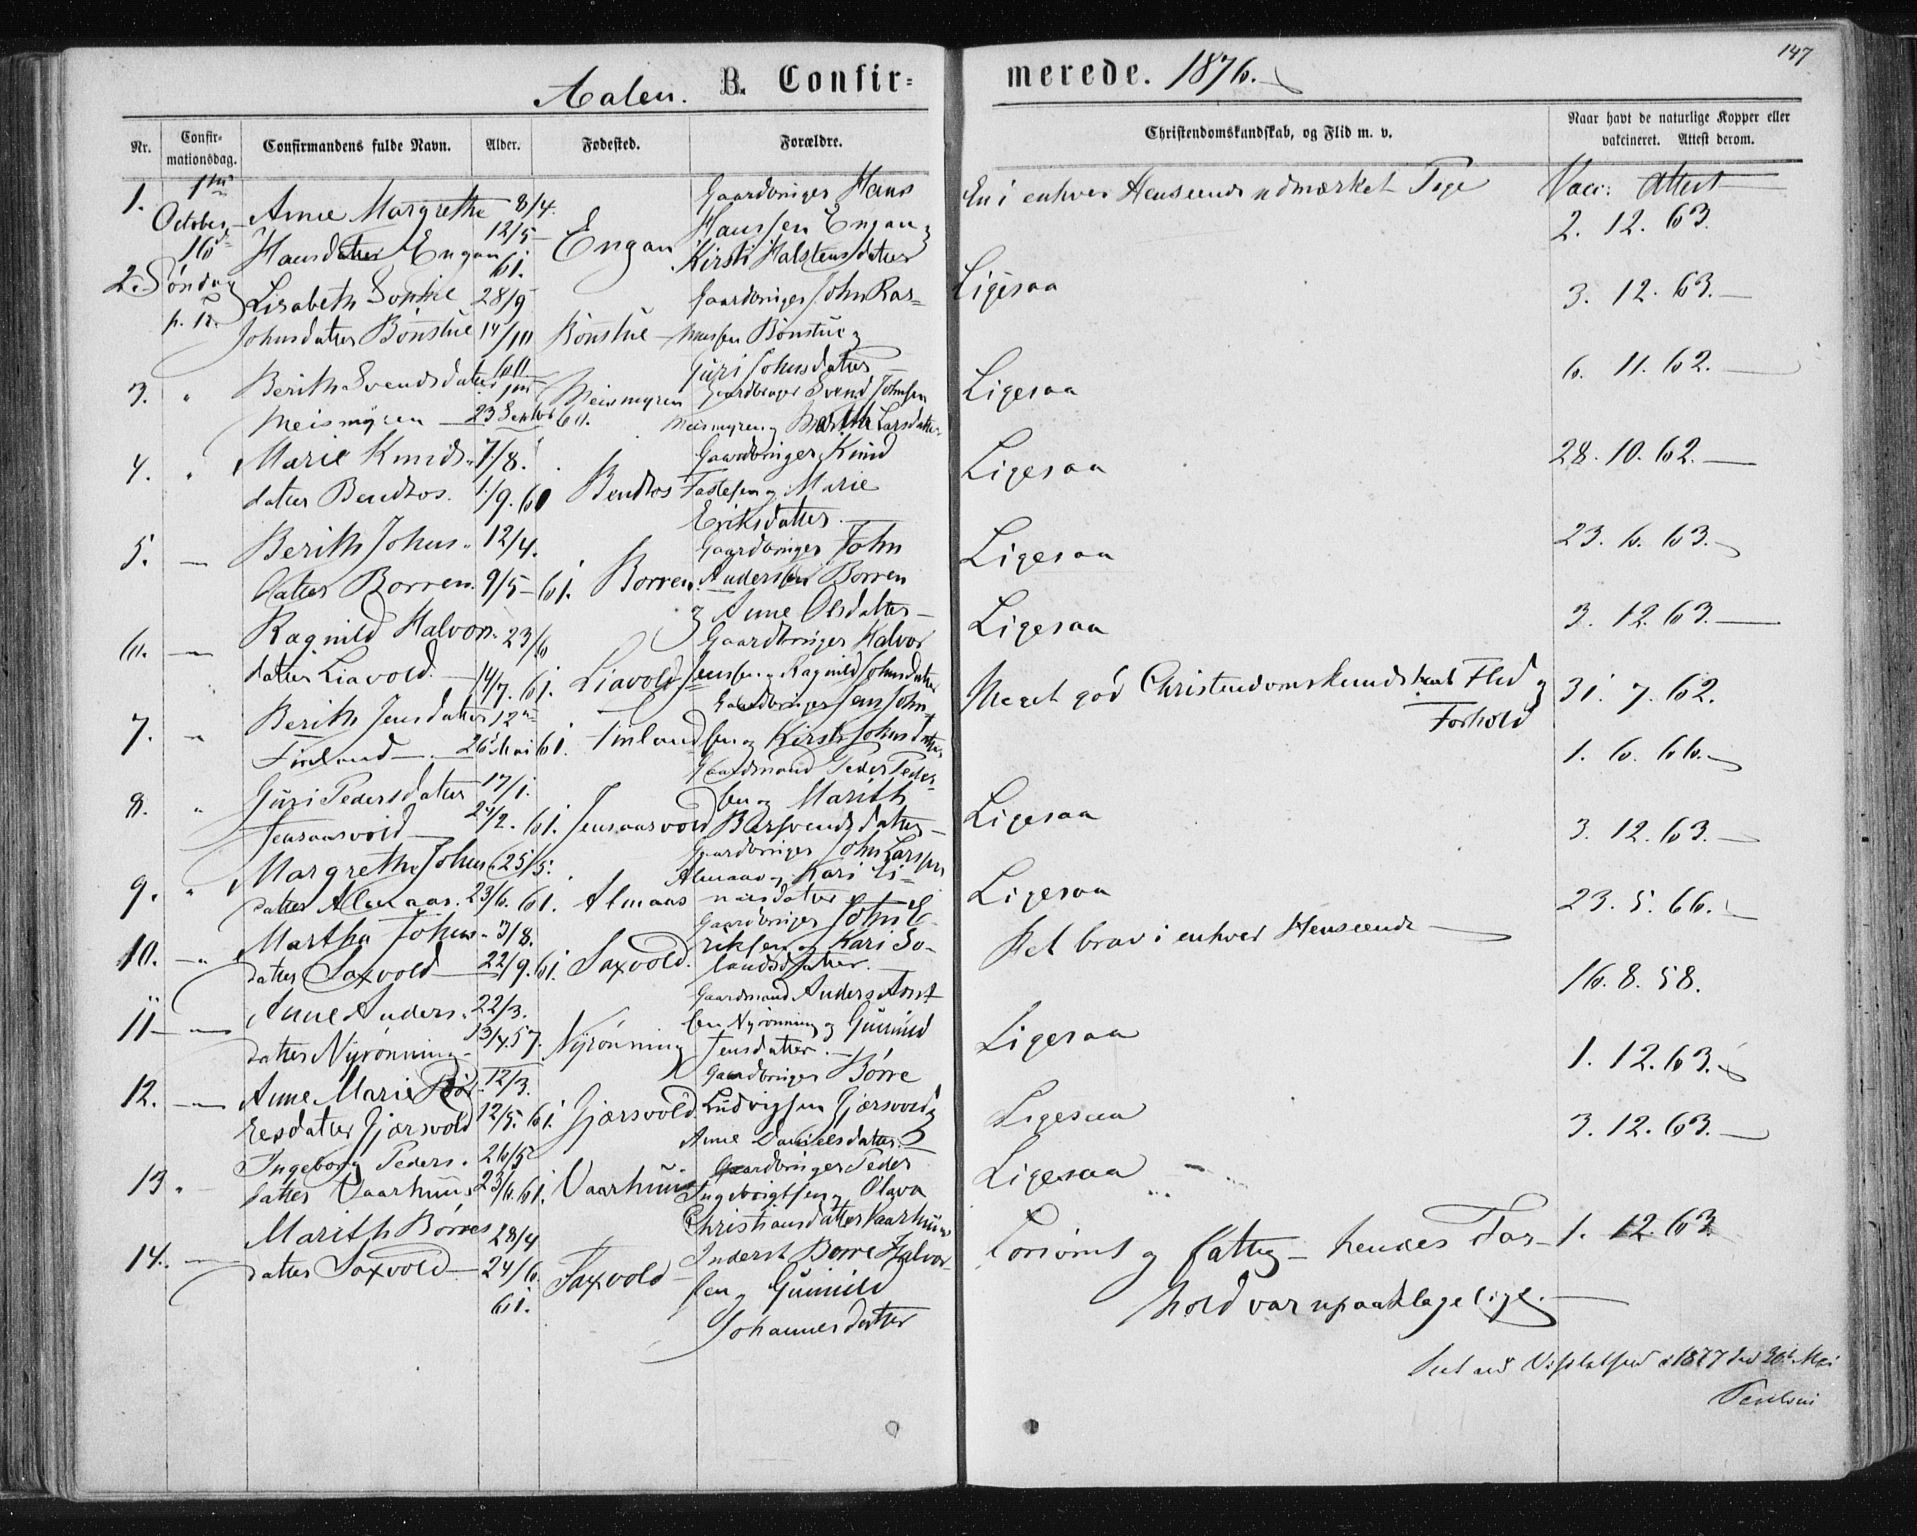 147
Aalen. B. Confir-
merede. 1876.
Nr. Confirmationsdag. Confirmandens fulde Navn. Alder. Fødested. Forældre. Christendomskundskab, og Flid m. v. Naar havt de naturlige Kopper eller vakcineret. Attest derom.
1. 1ste Gaardbruger Hans En i enhver Henseende udmærket Pige Vacc: Attest
October Anne Margrethe 8/4. Hanssen Engan og 2. 12. 63.
16de Hansdatter Engan 12/5 61. Engan Kirsti Halstensdatter
2. Søndag Lisabeth Sophie 28/9 Gaardbruger John Ras- Ligesaa 3. 12. 63.
p. Tr. Johnsdatter Bønstue 14/10 60 Bønstue mussen Bønstue og
Guri Johnsdatter 6. 11. 62.
3. " Berith Svendsdatter Meismyren Gaardbruger Svend Johnsen Ligesaa
Meismyren 23 Septbr 60. Meismyren og Marith Larsdatter
4. " Marie Knuds- 7/8. Gaardbruger Knud Ligesaa 28. 10. 62.
datter Bendtos. 1/9. 60 Bendtos og Marie
Eriksdatter.
5. Berith Johns- 12/4. Gaardbruger John Ligesaa 23. 6. 63.
datter Borren. 9/5 61. Borren. Anderssen Borren
og Anne Olsdatter
6. Ragnild Halvors- 23/6 Gaardbruger Halvor Ligesaa 3. 12. 63.
datter Liavold. 14/7. 61. Liavold Jenssen og Ragnild Johnsdatter
7. " Berith Jensdatter Gaardbruger Jens John- Meget god Christendomskundskab Flid og 31. 7. 62.
Finland 26 Mai 61. Finland sen og Kirsti Johnsdatter Forhold
Gaardmand Peder Peder- 1. 6. 66.
8. " Guri Pedersdatter 17/1. sen og Marith Ligesaa
Jensaasvold 24/2. 61. Jensaasvold Barsvendsdatter 3. 12. 63.
9. " Margrethe Johns- 25/5. Gaardbruger John Larssen
datter Almaas. 23/6. 61. Almaas Almaas og Kari Li- Ligesaa
nusdatter 23. 5. 66.
10. " Martha Johns- 3/8. Gaardbruger John E- Ret brav i enhver Henseende
datter Saxvold 22/9. 61. Saxvold. riksen og Kari Jo-
landsdatter. 16. 8. 58.
11 Anne Anders- 22/3. Gaardmand Anders
datter Nyrønning 13/4. 57. Nyrønning sen Nyrønning og Gunnild Ligesaa
Jensdatter. 1. 12. 63.
12. Anne Marie Bør- 12/3. Gaardbruger Børre
resdatter Gjærsvold 12/5. 61. Gjærsvold. Ludvigsen Gjærsvold og Ligesaa
Anne Danielsdatter 3. 12. 63.
13. Ingeborg Peders- 26/5 Gaardbruger Peder Ligesaa
datter Vaarhuus 23/6. 61. Vaarhuus Ingebrigtsen og Olava
Christiansdatter Vaarhuus
14. Marith Børres 28/4 Inderst Børre Halvor- Forsømt og fattig - hendes For- 1. 12. 63
datter Saxvold 24/6. 61. Saxvold sen og Gunnild hold var upaaklagelige.
Johannesdatter
Seet ved Visitatsen i 1877 den 30te Mai